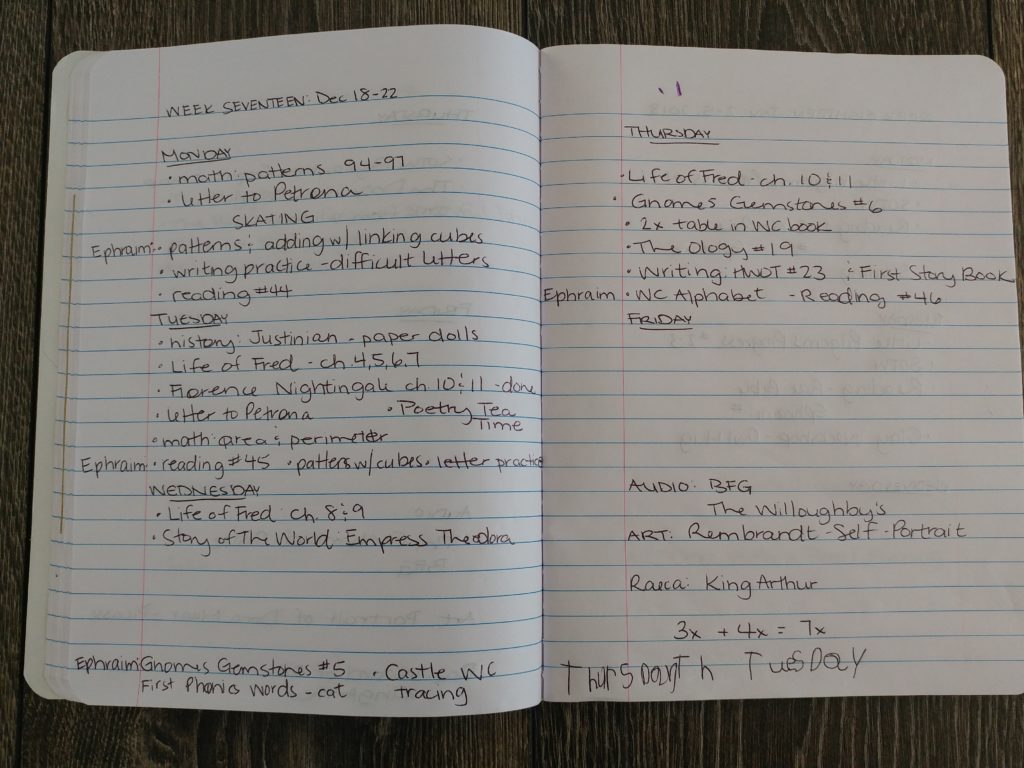 WEEK SEVENTEEN: Dec 18-22
MONDAY
• math: patterns 94-97
• letter to Petrona
SKATING
Ephraim: • patterns; adding w/ linking cubes
• writing practice - difficult letters
• reading #44
TUESDAY
• history: Justinian - paper dolls
• Life of Fred - ch. 4,5,6,7
• Florence Nightingale ch 10 & 11 - done
• letter to Petrona • Poetry Tea Time
• math: area & perimeter
Ephraim: • reading #45 • patters w/ cubes • letter practice
WEDNESDAY
• Life of Fred ch. 8 & 9
• Story of The World: Empress Theodora
Ephraim: Gnomes Gemstones #5 • Castle WC
First Phonics Words - cat tracing
THURSDAY
• Life of Fred - ch. 10 & 11
• Gnomes Gemstones #6
• 2x table in WC book
• The Ology #19
• Writing: HWOT #23 & First Story Book
Ephraim • WC Alphabet - Reading #46
FRIDAY
AUDIO: BFG
The Willoughby's
ART: Rembrandt - Self - Portrait
Raeca: King Arthur
3x + 4x = 7x
ThursDayTh TuesDay